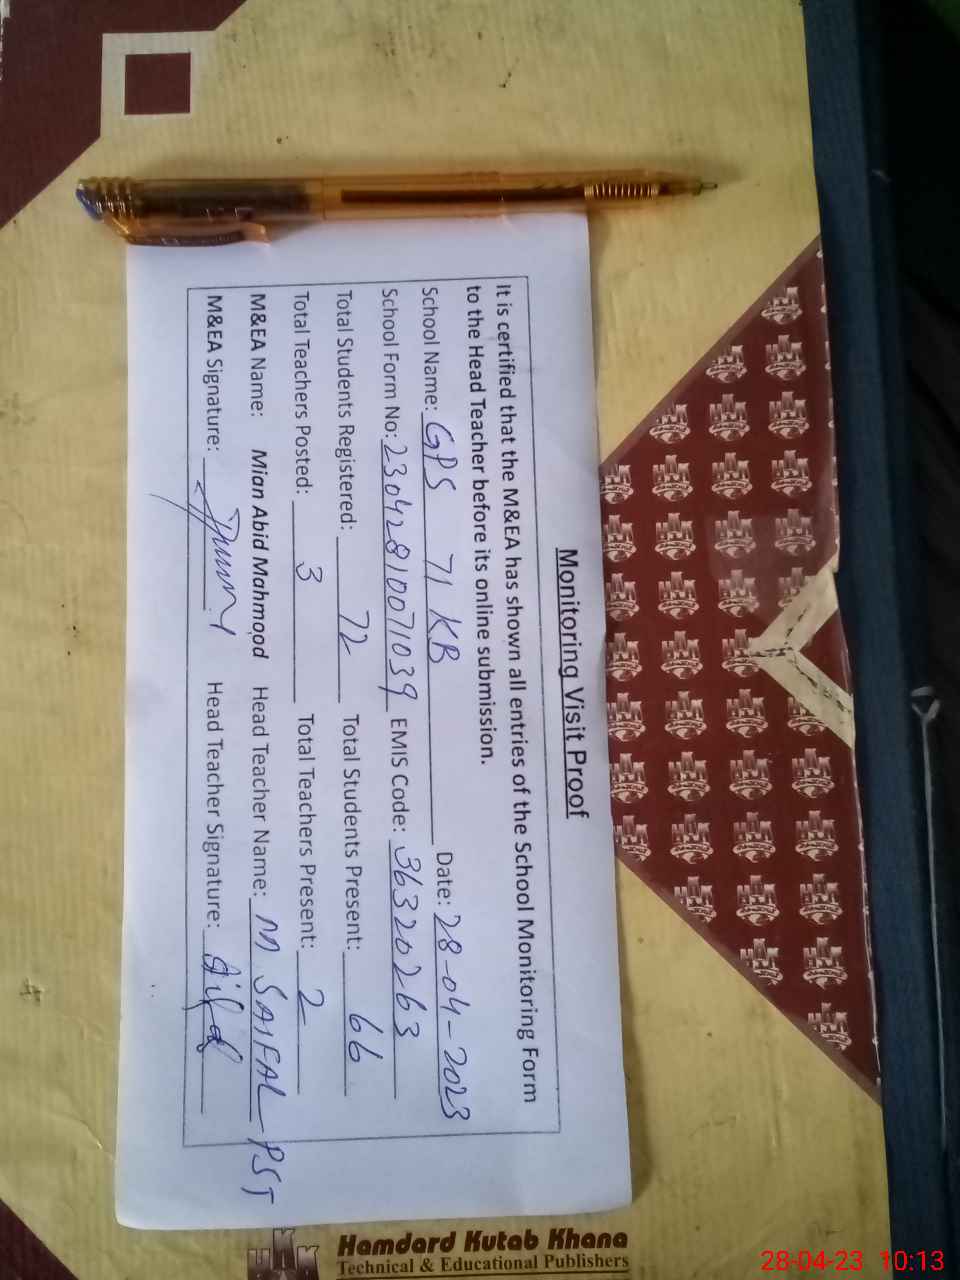 Monitoring Visit Proof
It is certified that the M&EA has shown all entries of the School Monitoring Form
to the Head Teacher before its online submission.
School Name: GPS 71 KB Date: 28-04-2023
School Form No: 23042810071039 EMIS Code: 36320263
Total Students Registered: 72 Total Students Present: 66
Total Teachers Posted: 3 Total Teachers Present: 2
M&EA Name: Mian Abid Mahmood Head Teacher Name: M SAIFAL PST
M&EA Signature: Head Teacher Signature:
Hamdard Kutab Khana
Technical & Educational Publishers
28-04-23 10:13